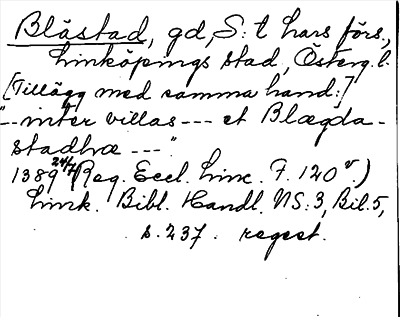 Blåstad, gd, S:t Lars förs.,
Linköpings stad, Österg. l.
[Tillägg med samma hand:]
"-- inter villas --- et Blægda-
stadhæ ---"
1389 24/7 (Reg. Eccl. Linc. F. 120 v.)
Link. Bibl. Handl. NS:3, Bil. 5,
s. 237. regest.